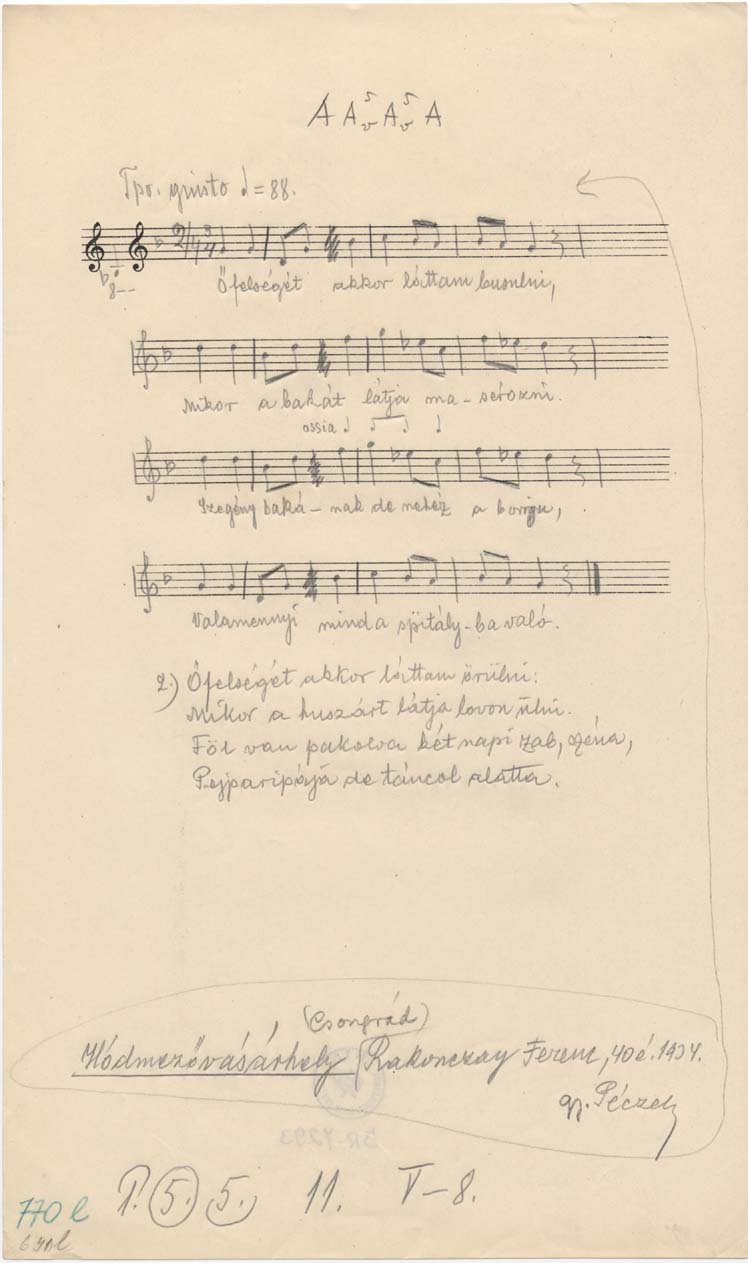 A A 5/v A 5/v A
Tpo. giusto ♩ = 88.
2/4 3/4
8--
Őfelségét akkor láttam busulni,
Mikor a bakát látja ma-sérozni.
ossia
Szegény baká-nak de nehéz a bornyu,
Valamennyi mind a spitály-ba való.
2.) Őfelségét akkor láttam örülni:
Mikor a huszárt látja lovon ülni.
Föl van pakolva két napi zab, széna,
Pejparipája de táncol alatta.
(Csongrád)
Hódmezővásárhely Rakonczay Ferenc, 40 é. 1934.
gy. Péczely
BR-7293
P. 5. 5. 11. V-8.
770 l